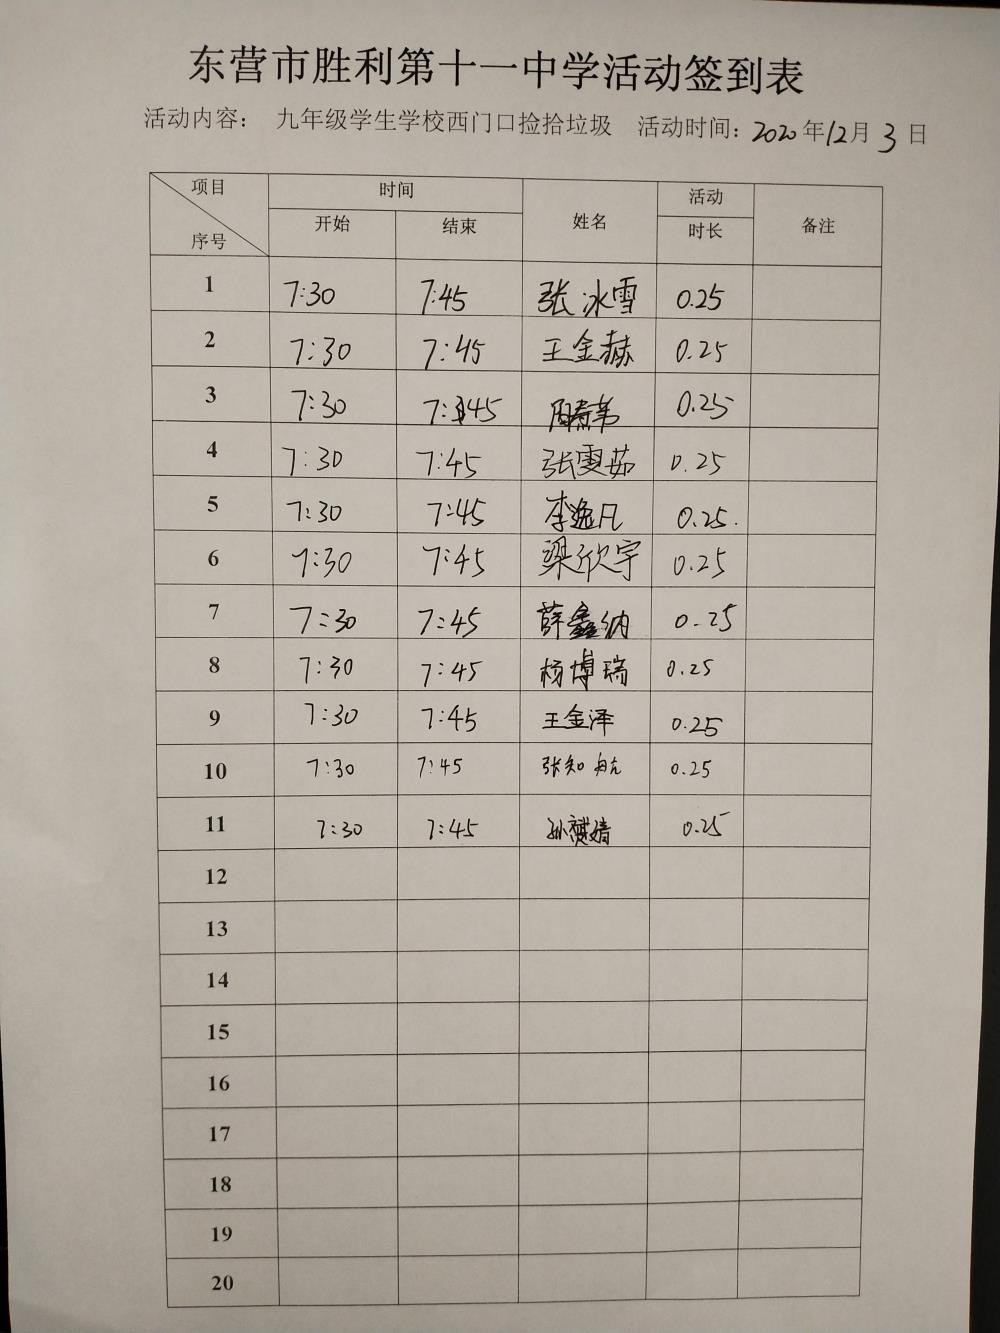 东营市胜利第十一中学活动签到表
活动内容： 九年级学生学校西门口捡拾垃圾 活动时间：2020年12月3日
项目 时间 姓名 活动 备注
序号 开始 结束 时长
1 7:30 7:45 张冰雪 0.25
2 7:30 7:45 王金赫 0.25
3 7:30 7:45 0.25
4 7:30 7:45 张雯茹 0.25
5 7:30 7:45 李逸凡 0.25.
6 7:30 7:45 梁欣宇 0.25
7 7:30 7:45 薛鑫纳 0.25
8 7:30 7:45 杨博瑞 0.25
9 7:30 7:45 王金泽 0.25
10 7:30 7:45 张知航 0.25
11 7:30 7:45 孙 0.25
12
13
14
15
16
17
18
19
20